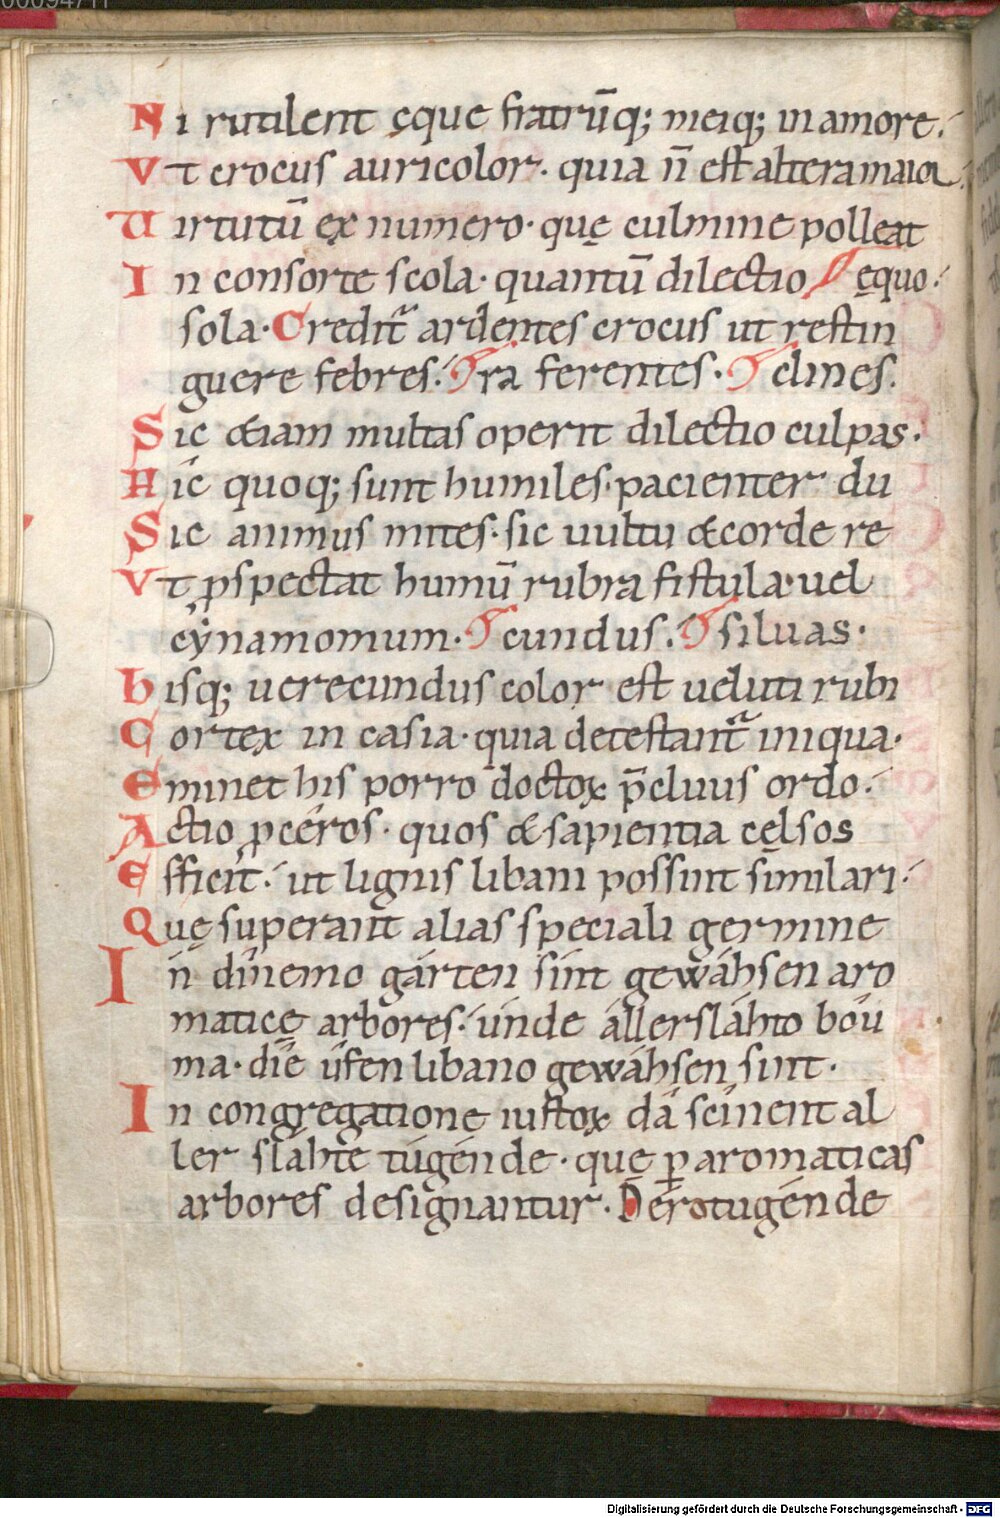 00094711
Ni rutilent ęque fratrūq; meiq; in amore.
Vt crocus auricolor· quia n̄ est altera maior.
Uirtutū ex numero· quę culmine polleat
In consorte scola· quantū dilectio ęquo·
sola· Credit᷑ ardentes crocus ut restin
guere febres. ra ferentes· clines.
Sic &iam multas operit dilectio culpas·
Hic quoq; sunt humiles· pacienter du
Sic animus mites· sic uultu & corde re
Vt ꝑspectat humū rubra fistula uel
cẏnamomum· cundus. siluas·
bisq; uerecundus color est ueluti rubi
Cortex in casia· quia detestant᷑ iniqua·
Eminet his porro doctoꝝ p̄cluus ordo·
Actio ꝓceros· quos & sapientia cęlsos
Efficit· ut lignis libani possint similari·
Quę superant alias speciali germine
In dínemo gárten sínt gewáhsen aro
maticę arbores· únde állersláhto boú
ma· díe úfen libano gewáhsen sint·
In congregatione iustoꝝ dá scínent al
ler sláhte túgénde· quę ꝑ aromaticas
arbores designantur· Dérotugénde
Digitalisierung gefördert durch die Deutsche Forschungsgemeinschaft - DFG